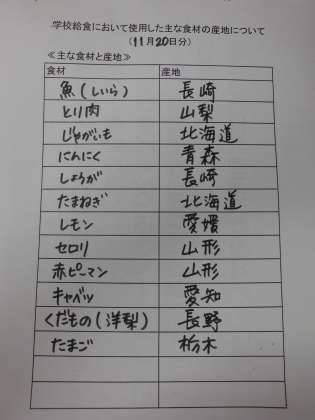 学校給食において使用した主な食材の産地について
(11月20日分)
≪主な食材と産地≫
食材 産地
魚(しいら) 長崎
とり肉 山梨
じゃがいも 北海道
にんにく 青森
しょうが 長崎
たまねぎ 北海道
レモン 愛媛
セロリ 山形
赤ピーマン 山形
キャベツ 愛知
くだもの(洋梨) 長野
たまご 栃木